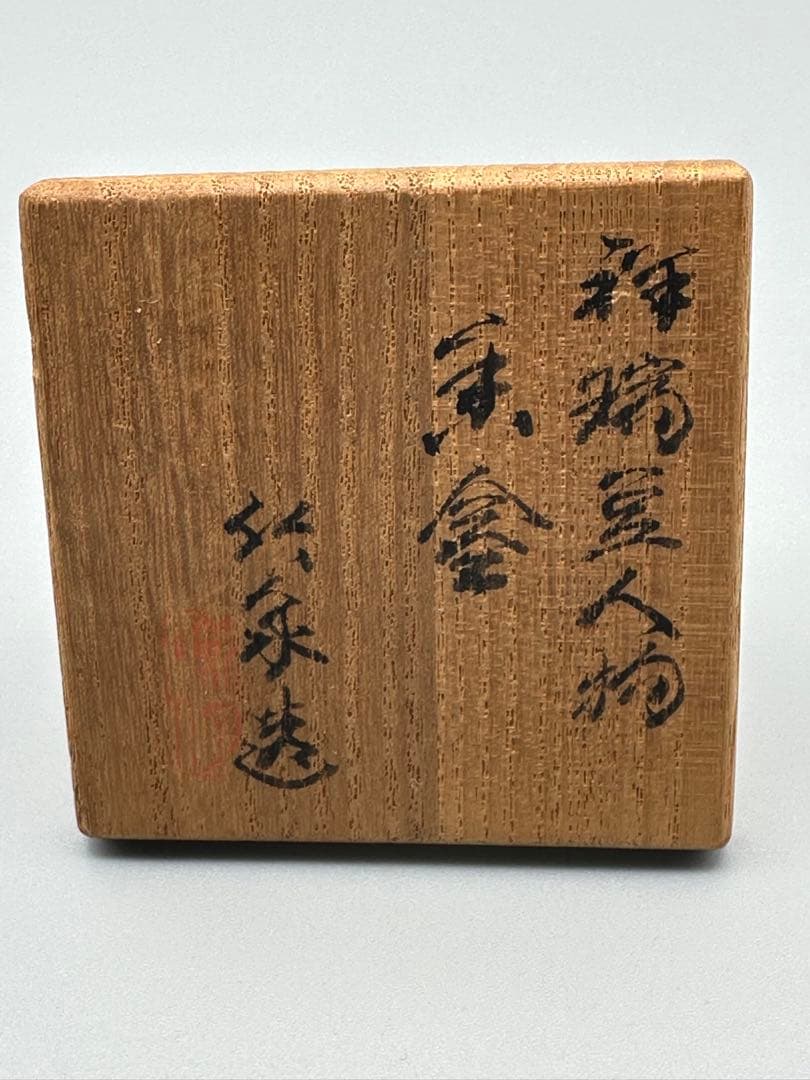 祥瑞豆人物
香盒
竹泉造